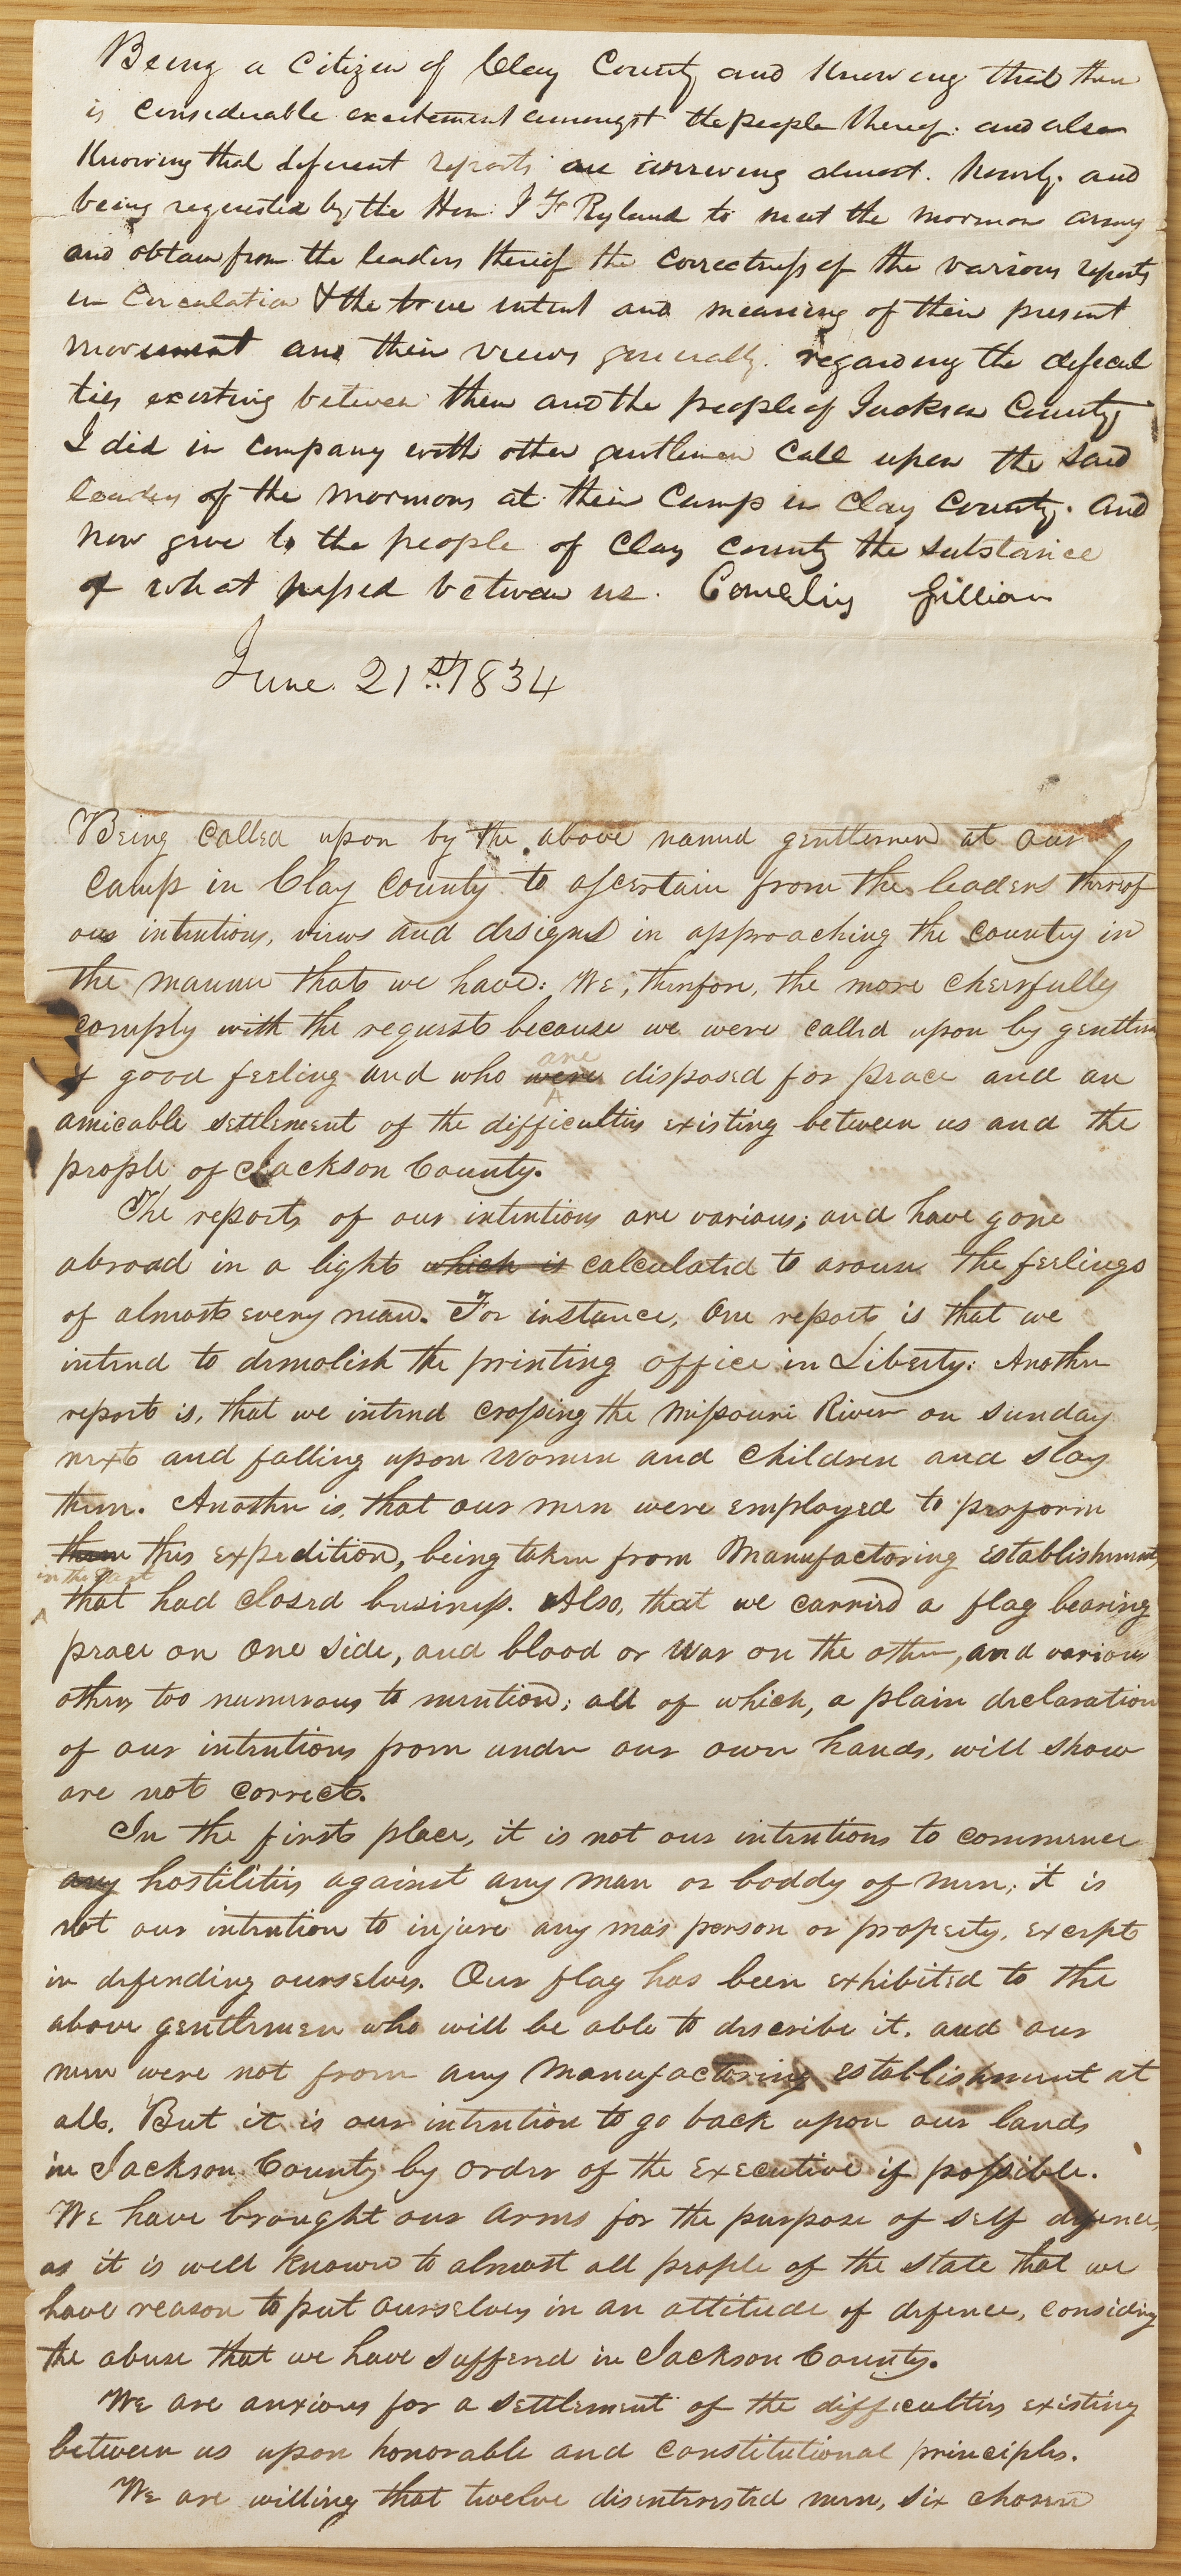 Being a Citizen of Clay County and Knowing that there
is considerable excitement amongst the people thereof: and also
Knowing that deferent reports are arriveing almost. hourly. and
being requested by the Hon. J F Ryland to meet the mormon army
and obtain from the leaders thereof the correctness of the various reports
in Circulation & the true intent and meaning of their present
movement and their views generally. regarding the deficul
ties existing between them and the people of Jackson County
I did in company with other gentlemen Call upon the said
leaders of the mormons at their Camp in Clay County. and
now give to the people of Clay county the substance
of what passed between us. Cornelius Gilliam
June. 21st. 1834
Being called upon by the above named gentlemen at our
camp in Clay County to ascertain from the leaders thereof
our intentions, views and designs in approaching the county in
the manner that we have: We, therefore, the more cheerfully
comply with the request because we were called upon by gentlem
of good feeling and who were are disposed for peace and an
amicable settlement of the difficulties existing between us and the
people of Jackson County.
The reports of our intentions are various; and have gone
abroad in a light which is calculated to arouse the feelings
of almost every man. For instance, One report is that we
intend to demolish the printing office in Liberty: Another
report is, that we intend crossing the Missouri River on sunday
next and falling upon women and children and slay
them. Another is, that our men were employed to perform
them this expedition, being taken from Manufactoring establishments
in the East that had closed business. Also, that we carried a flag bearing
peace on one side, and blood or war on the other, and various
others too numerous to mention; all of which, a plain declaration
of our intentions from under our own hands, will show
are not correct.
In the first place, it is not our intentions to commence
any hostilities against any man or boddy of men; it is
not our intention to injure any mas person or property, except
in defending ourselves. Our flag has been exhibited to the
above gentlemen who will be able to describe it. and our
men were not from any Manufactoring establishment at
all. But it is our intention to go back upon our lands
in Jackson County by order of the Executive if possible.
We have brought our arms for the purpose of self defence,
as it is well known to almost all people of the state that we
have reason to put ourselves in an attitude of defence, considering
the abuse that we have suffered in Jackson County.
We are anxious for a settlement of the difficulties existing
between us upon honorable and constitutional principles.
We are willing that twelve disinterested men, six chosen